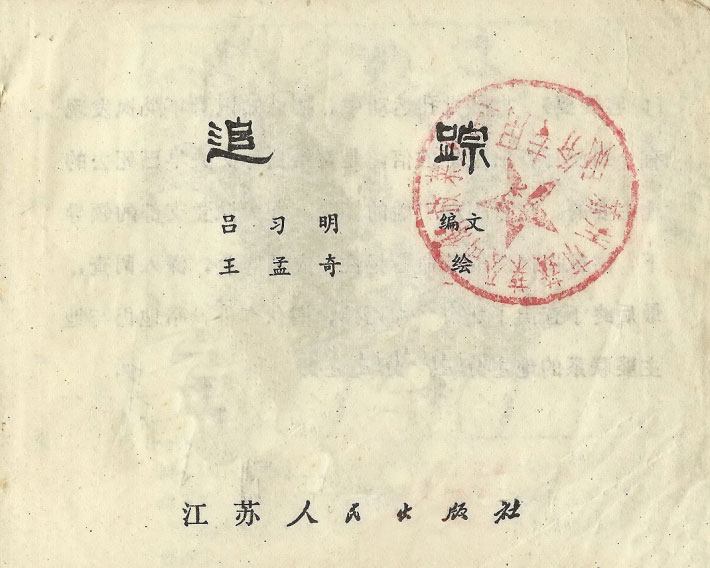 追踪
吕习明 编文
王孟奇 绘
江苏人民出版社
财务专用